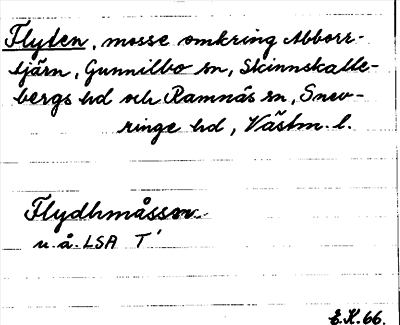 Flyten, mosse omkring Abborr-
tjärn, Gunnilbo sn, Skinnskatte-
bergs hd och Ramnäs sn, Snev-
ringe hd, Västm. l.
Flydhmåssen
u.å. LSA T'
E.K. 66.